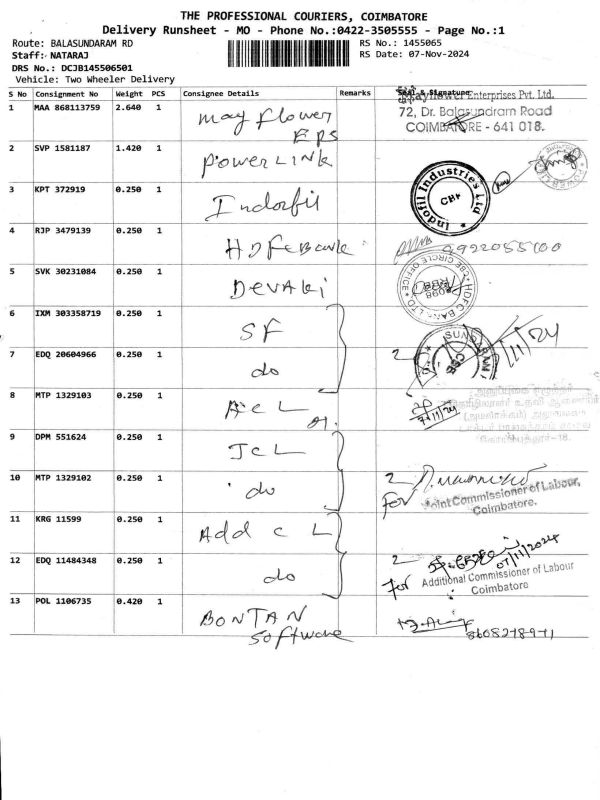 THE PROFESSIONAL COURIERS, COIMBATORE
Delivery Runsheet - MO - Phone No.:0422-3505555 - Page No.:1
Route: BALASUNDARAM RD
RS No.: 1455065
Staff: NATARAJ
RS Date: 07-Nov-2024
DRS No.: DCJB145506501
Vehicle: Two Wheeler Delivery
S No Consignment No Weight PCS Consignee Details Remarks Seal & Signature
Mayflower Enterprises Pvt. Ltd.
72, Dr. Balasundram Road
COIMBATORE - 641 018.
1 MAA 868113759 2.640 1 may flower
EPS
2 SVP 1581187 1.420 1 POWERLINK
POWERLI
3 KPT 372919 0.250 1 Indofil
Indofil Industries Ltd
CBE
4 RJP 3479139 0.250 1 HDFC Bank
HDFC BANK LTD
CBE CIRCLE OFFICE
5 SVK 30231084 0.250 1 Devaki
6 IXM 303358719 0.250 1 SF
SUNDARAM
CBE
7 EDQ 20604966 0.250 1 do
2
8 MTP 1329103 0.250 1 ACL
7/11/24
9 DPM 551624 0.250 1 JCL
10 MTP 1329102 0.250 1 do
2
For Joint Commissioner of Labour,
Coimbatore.
11 KRG 11599 0.250 1 Add C L
12 EDQ 11484348 0.250 1 do
2
07/11/2024
For Additional Commissioner of Labour
Coimbatore
13 POL 1106735 0.420 1 BONTAN
Software